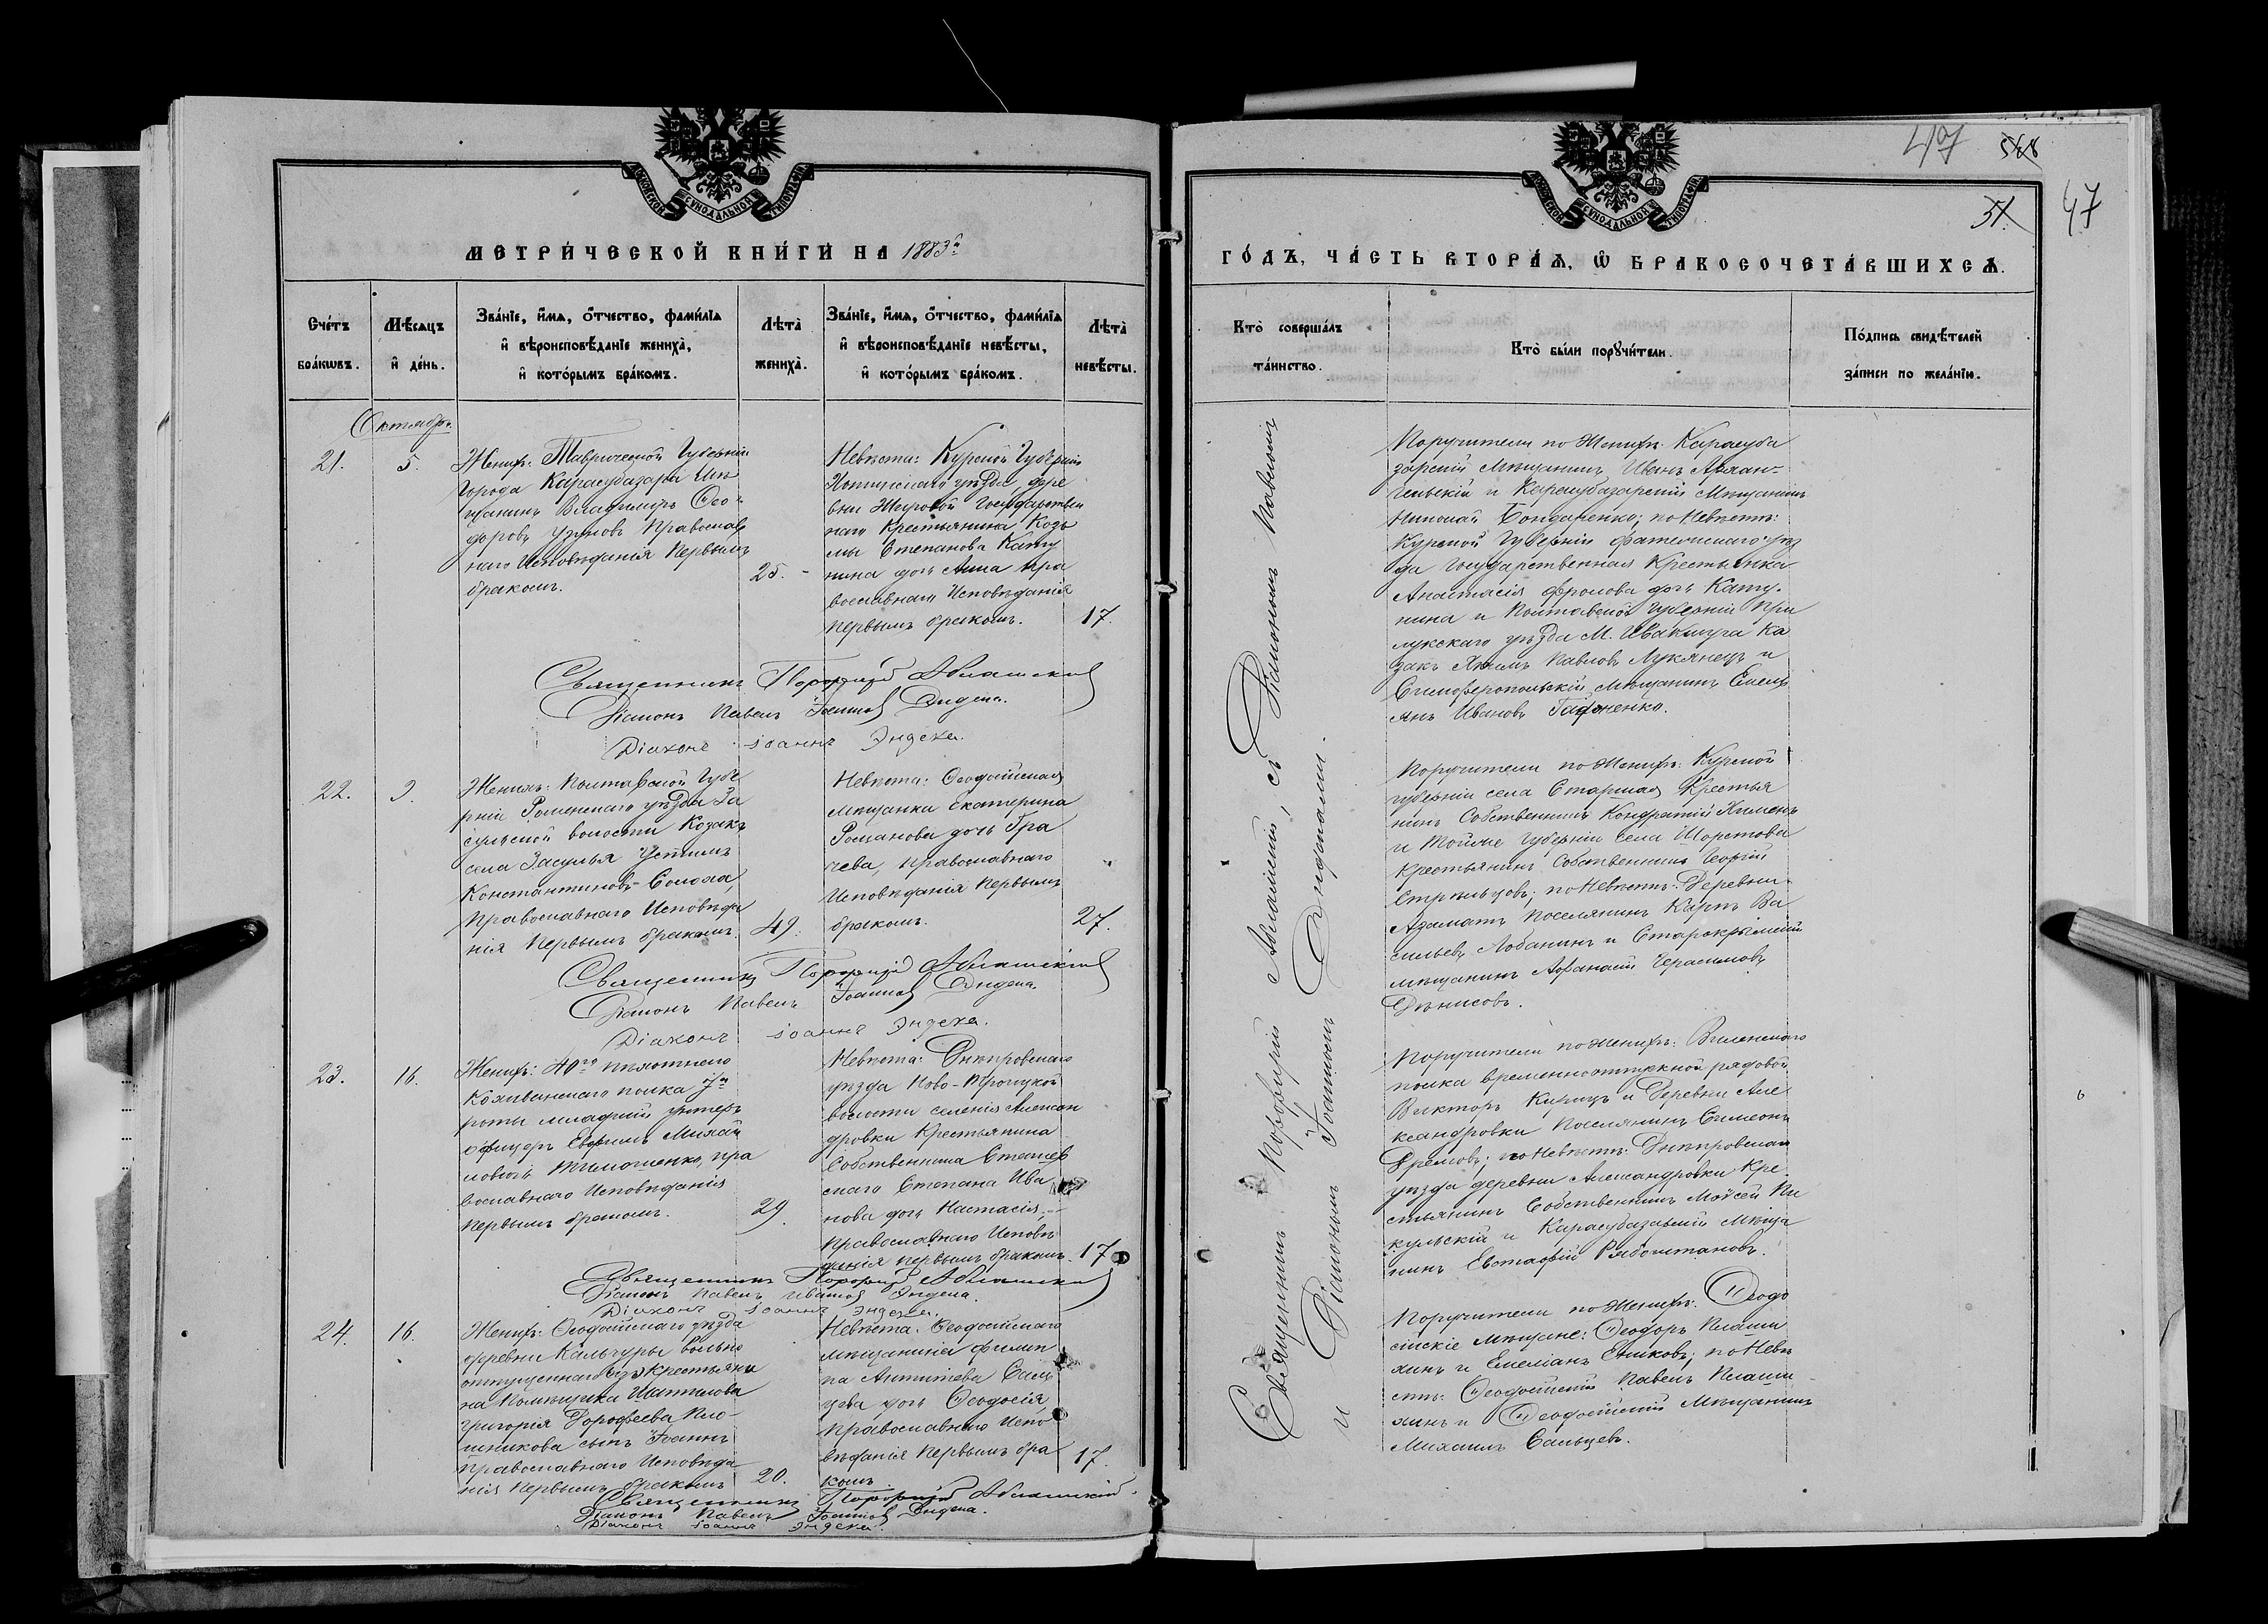 МОСКОВСКОЙ СУНОДАЛЬНОЙ ТИПОГРАФІИ
МЕТРИ́ЧЕСКОЙ КНИ́ГИ НА 1883й
Сче́тъ бра́кωвъ.
Мѣ́сяцъ и҆ де́нь.
Зва́нїе, и҆́мѧ, о҆́тчество, фами́лїѧ
и҆ вѣроисповѣ́данїе жениха̀,
и҆ кото́рымъ бра́комъ.
Лѣта̀ жениха̀.
Зва́нїе, и҆́мѧ, о҆́тчество, фами́лїѧ
и҆ вѣроисповѣ́данїе невѣ́сты,
и҆ кото́рымъ бра́комъ.
Лѣта̀ невѣ́сты.
Октябрь
21.
5.
Женихъ: Таврической Губерніи
города Карасубазара Мѣ
щанинъ Владиміръ Ѳео
доровъ Узуновъ Православ
наго Исповѣданія Первымъ
бракомъ.
25.
Невѣста: Курской Губерніи
уѣзда, дере
вни Государствен
наго Крестьянина Козь
мы Степанова Кату
нина дочь Анна Пра
вославнаго Исповѣданія
Первымъ бракомъ.
17.
Священникъ Порфирій Аблашскій
Діаконъ Павелъ Іоанновъ Эндека.
Діаконъ Іоаннъ Эндека.
22.
9.
Женихъ: Полтавской Губе
рніи Роменскаго уѣзда За
сульской волости Козакъ
села Засулья Устимъ
Константиновъ
Православнаго Исповѣда
нія Первымъ бракомъ.
49.
Невѣста: Ѳеодосійская
мѣщанка Екатерина
Романова дочь Гра
чева, Православнаго
Исповѣданія Первымъ
бракомъ.
27.
Священникъ Порфирій Аблашскій
Діаконъ Павелъ Іоанновъ Эндека.
Діаконъ Іоаннъ Эндека.
23.
16.
Женихъ: 40го пѣхотнаго
Колыванскаго полка 7й
роты младшій унтеръ
офицеръ Ефимъ Михай
ловичъ Тимошенко, пра
вославнаго Исповѣданія
Первымъ бракомъ.
29.
Невѣста: Днѣпровскаго
уѣзда Ново-Троицкой
волости селенія Алексан
дровки Крестьянина
Собственника
Степана Ива
нова дочь Настасія,
Православнаго Исповѣ
данія первымъ бракомъ.
17
Священникъ Порфирій Аблашскій
Діаконъ Павелъ Ивановъ Эндека.
Діаконъ Іоаннъ Эндека.
24.
16.
Женихъ: Ѳеодосійскаго уѣзда
деревни Кальчуры вольно
отпущеннаго изъ крестьяни
на Помѣщика Шатилова
Григорія Дорофеева Пло
шникова сынъ Іоаннъ
Православнаго Исповѣда
нія Первымъ бракомъ
20.
Невѣста: Ѳеодосійскаго
мѣщанина Филип
па Антипева Саль
цева дочь Ѳеодосія,
Православнаго Испо
вѣданія Первымъ бра
комъ
17.
Священникъ Порфирій Аблашскій.
Діаконъ Павелъ Іоанновъ Эндека.
Діаконъ Іоаннъ Эндека.
47
47
МОСКОВСКОЙ СУНОДАЛЬНОЙ ТИПОГРАФІИ
ГО́ДЪ, ЧА́СТЬ ВТОРА́Ѧ, Ѽ БРАКОСОЧЕТА́ВШИХСѦ.
Кто̀ соверша́лъ та́инство.
Кто̀ бы́ли порꙋчи́тели.
По́дпись свидѣ́телей
за́писи по жела́нїю.
Священникъ Порфирій Аблашскій, съ Діакономъ Павломъ
и Діакономъ Іоанномъ Эндеками.
Поручители по Женихѣ: Карасуба
зарскій Мѣщанинъ Иванъ Архан-
гельскій и Карасубазарскій Мѣщанинъ
Николай Бондаренко; по Невѣстѣ:
Курской Губерніи Фатежскаго уѣз
да Государственная Крестьянка
Анастасія Фролова дочь Кату-
нина и Полтавской Губерніи При
лукскаго уѣзда М. Ка
закъ Якимъ Павловъ Лукянецъ и
Симферопольскій мѣщанинъ Емелі
янъ Ивановъ
Поручители по Женихѣ: Курской
губерніи села Крестья
нинъ Собственникъ Кондратій
и Тойже Губерніи села
Крестьянинъ Собственникъ Георгій
Стрѣльцовъ; по Невѣстѣ: Деревни
Азаматъ Поселянинъ Карпъ Ва
сильевъ Лобанинъ и Старокрымскій
мѣщанинъ Афанасій Герасимовъ
Денисовъ.
Поручители по женихѣ: Виленскаго
полка временноотпускной рядовой
Викторъ и Деревни Але
ксандровки Поселянинъ Симеонъ
по Невѣстѣ: Днѣпровскаго
уѣзда деревни Александровки Кре
стьянинъ Собственникъ Мойсей Пи
кульскій и Карасубазарскій Мѣща
нинъ Евстафій Рябоштановъ.
Поручители по Женихѣ: Ѳеодо
сійскіе мѣщане: Ѳеодоръ Плаши
хинъ и Емеліанъ по Невѣ
стѣ: Ѳеодосійскій Павелъ Плаши
хинъ и Ѳеодосійскій Мѣщанинъ
Михаилъ Сальцевъ.